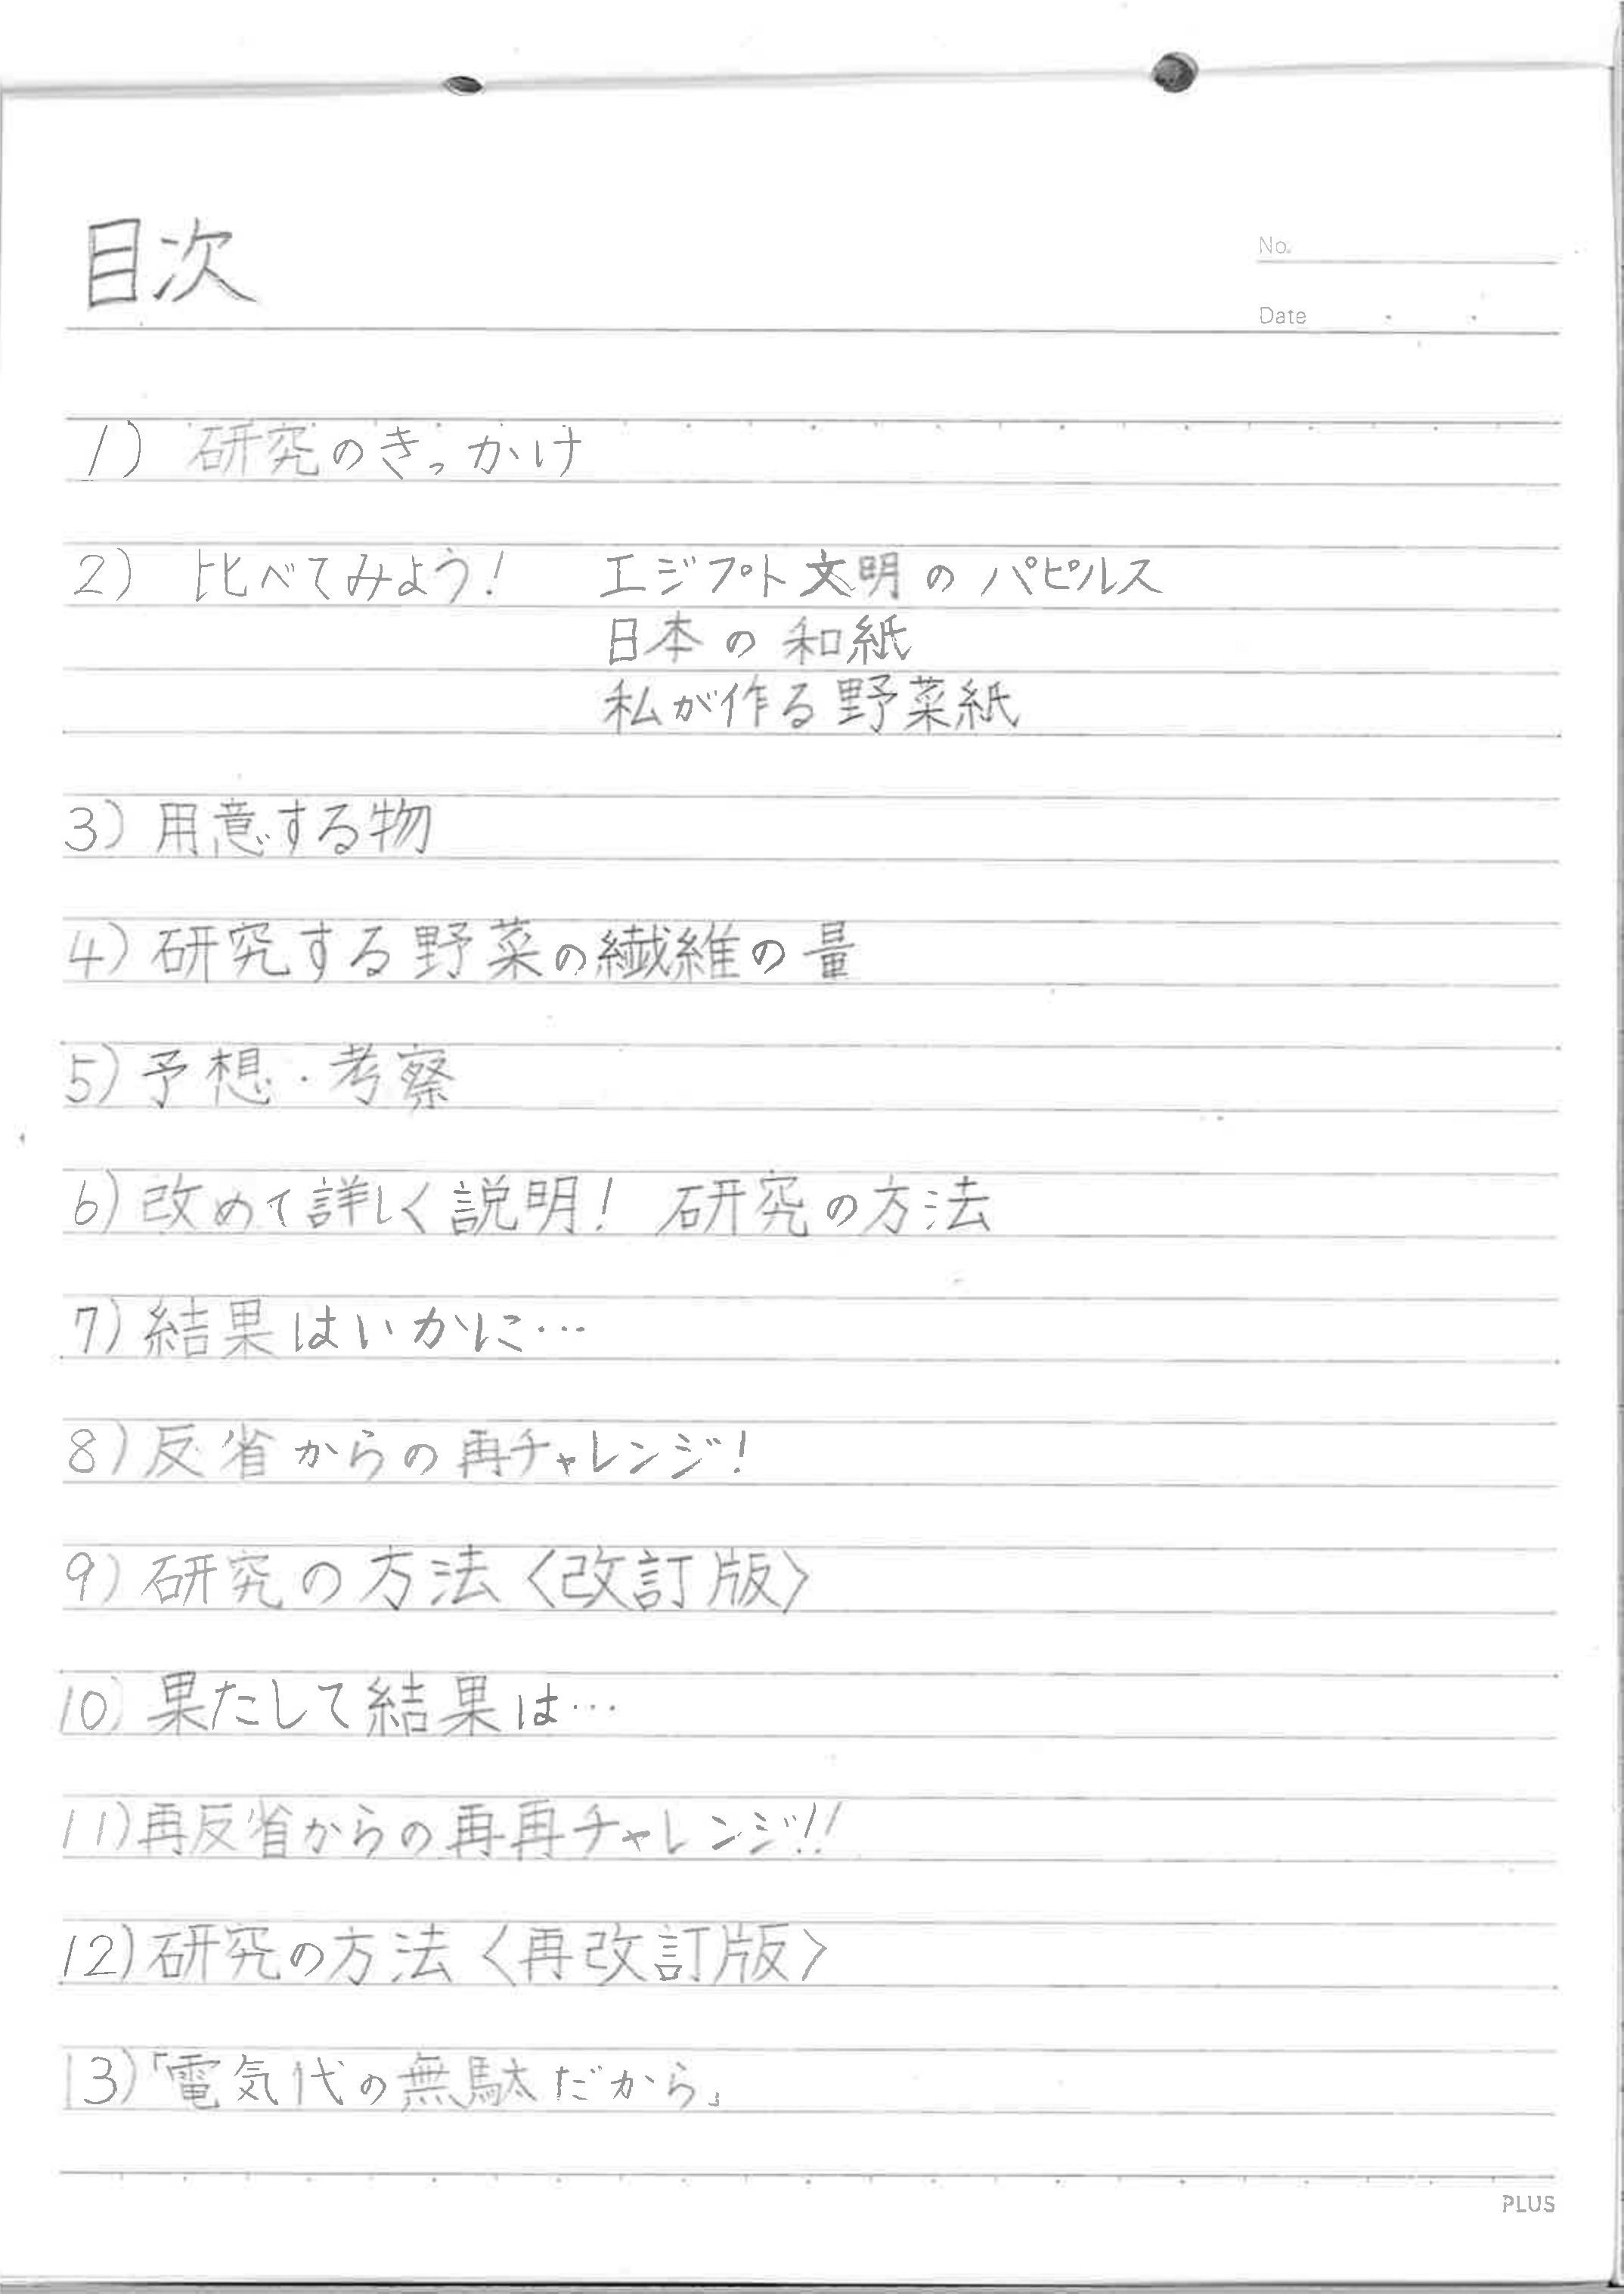 目次
No.
Date
1) 研究のきっかけ
2) 比べてみよう! エジプト文明のパピルス
日本の和紙
私が作る野菜紙
3) 用意する物
4) 研究する野菜の繊維の量
5) 予想・考察
6) 改めて詳しく説明! 研究の方法
7) 結果はいかに…
8) 反省からの再チャレンジ!
9) 研究の方法〈改訂版〉
10) 果たして結果は…
11) 再反省からの再再チャレンジ!!
12) 研究の方法〈再改訂版〉
13)「電気代の無駄だから」
PLUS